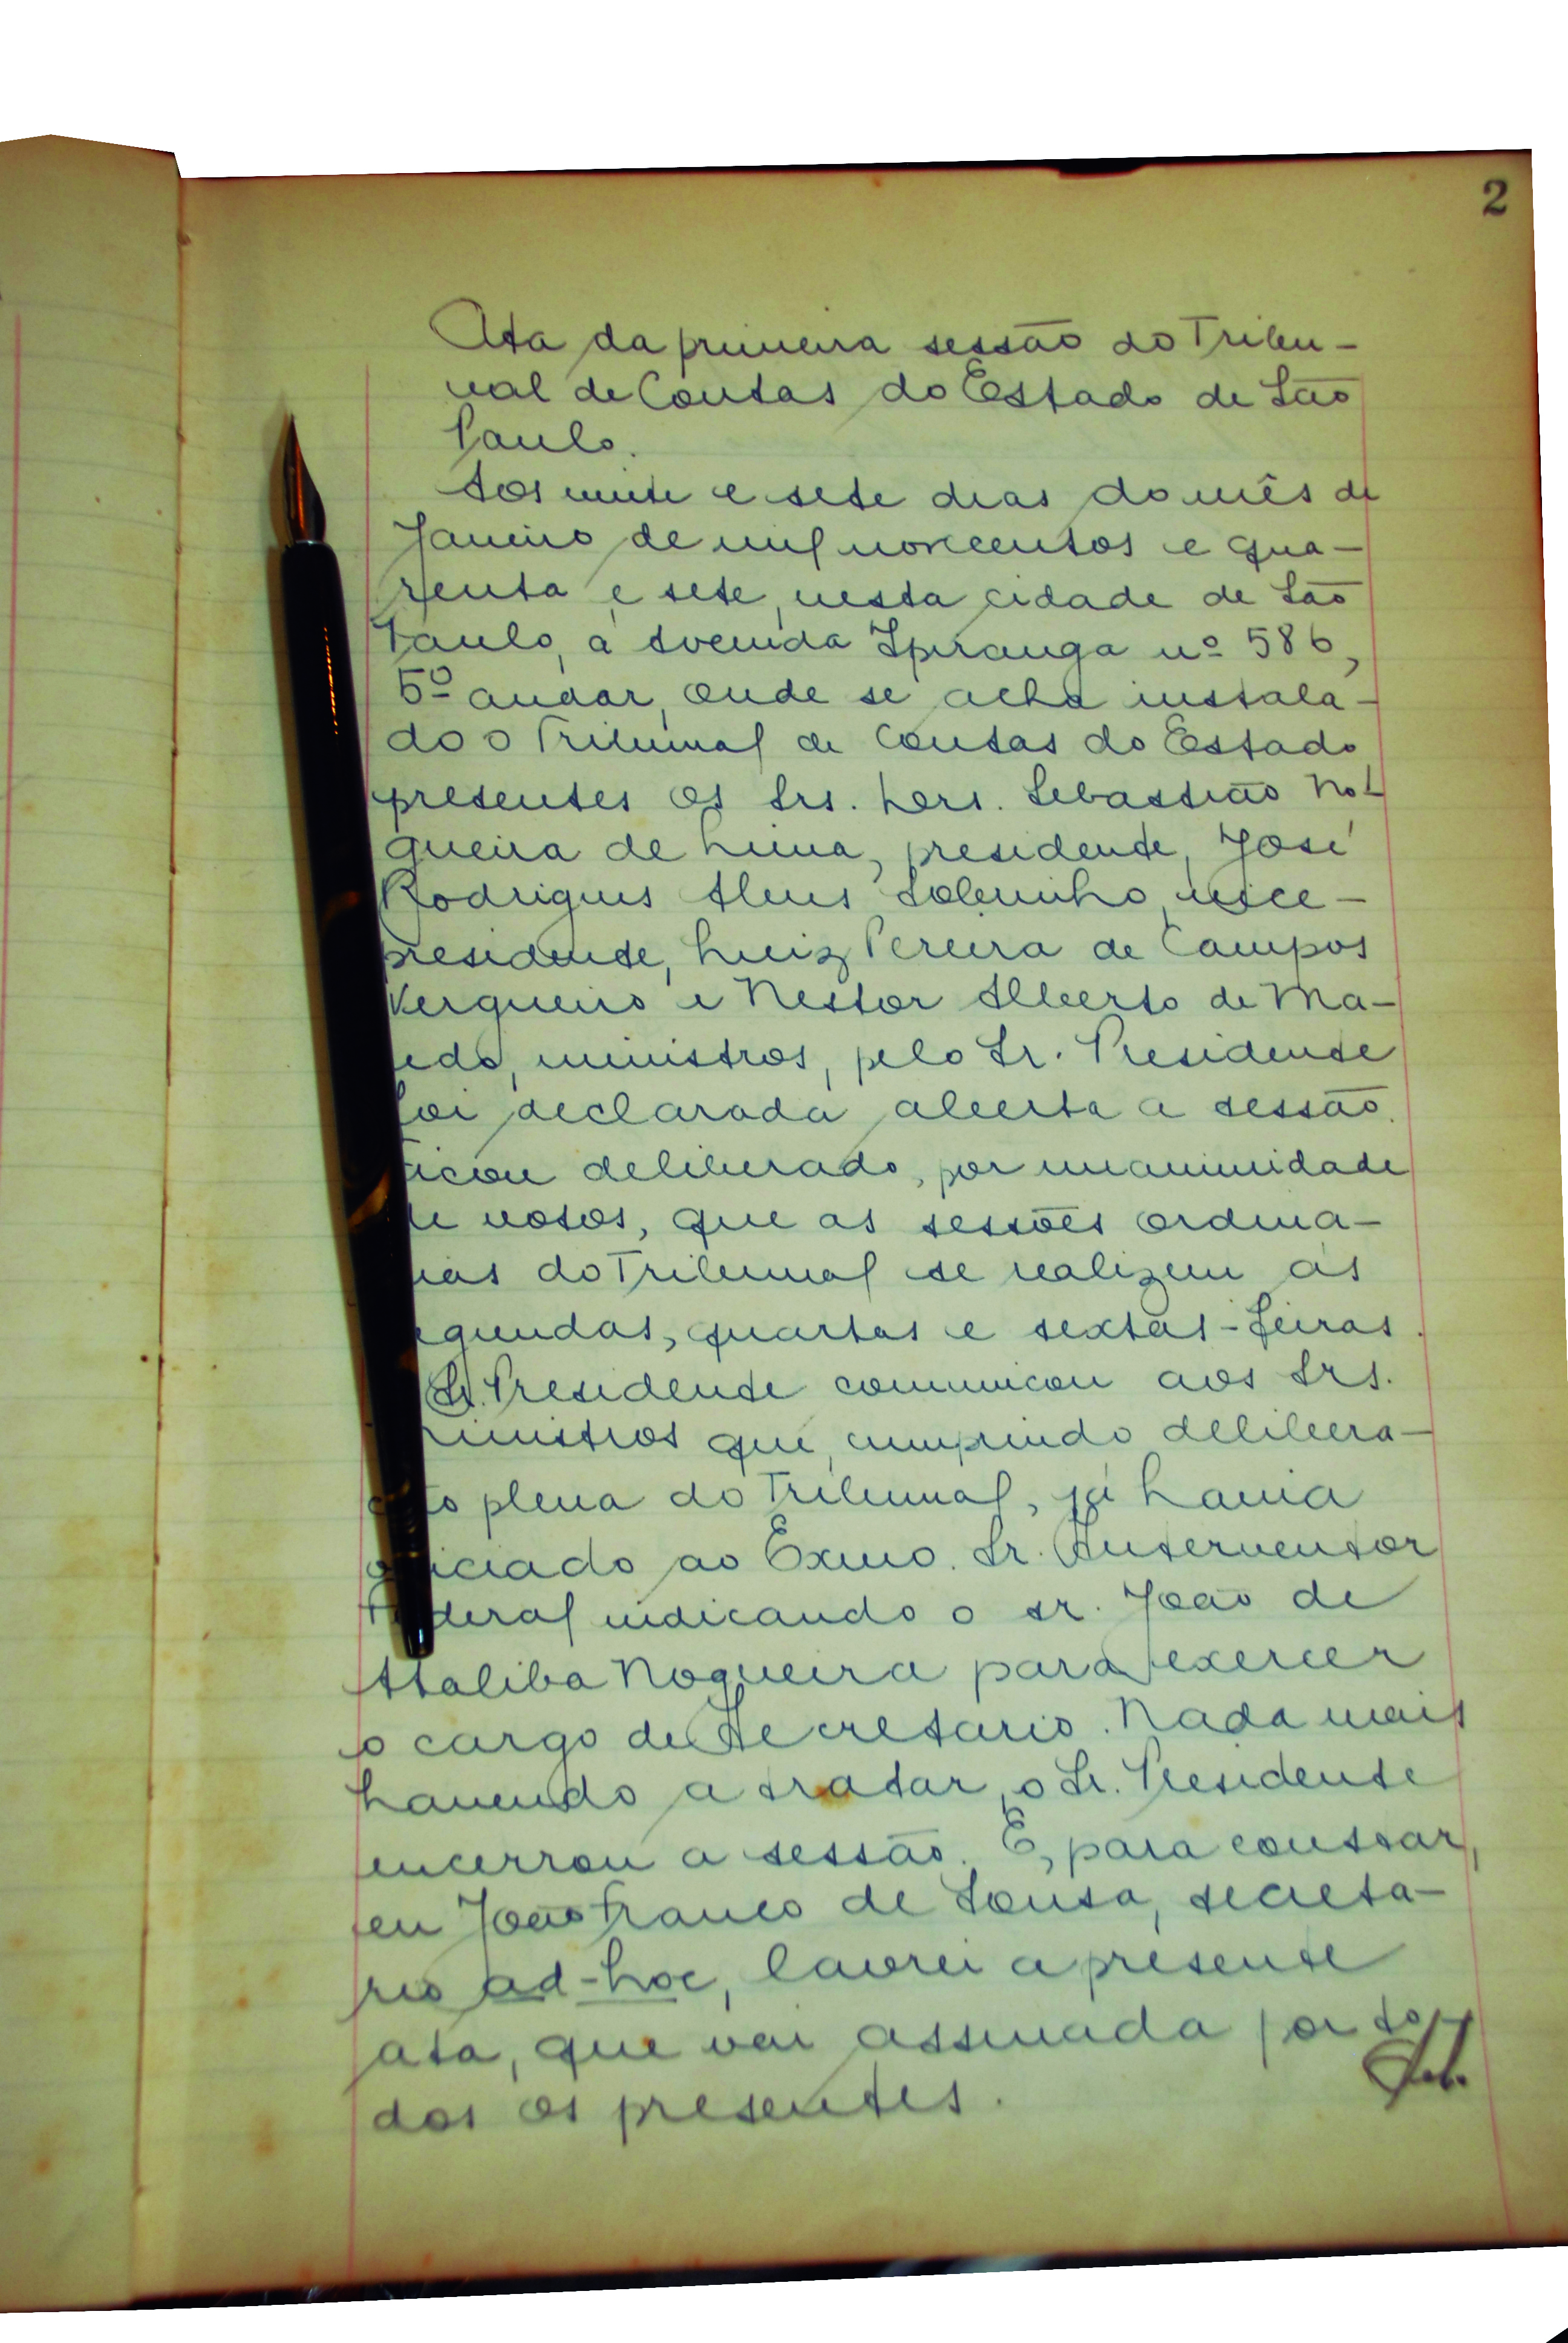 2
Ata da primeira sessão do Tribu-
nal de Contas do Estado de São
Paulo.
Aos vinte e sete dias do mês de
Janeiro de mil novecentos e qua-
renta e sete, nesta cidade de São
Paulo, à Avenida Ipiranga nº 586,
5º andar, onde se acha instala-
do o Tribunal de Contas do Estado
presentes os Srs. Drs. Sebastião No-
gueira de Lima, presidente, José
Rodrigues Alves Sobrinho, vice-
presidente, Luiz Pereira de Campos
Vergueiro e Nestor Alberto de Ma-
cedo, ministros, pelo Sr. Presidente
foi declarada aberta a sessão.
Ficou deliberado, por unanimidade
de votos, que as sessões ordina-
rias do Tribunal se realizem às
egundas, quartas e sextas-feiras.
Sr. Presidente comunicou aos Srs.
ministros que, cumprindo delibera-
ção plena do Tribunal, já havia
oficiado ao Exmo. Sr. Interventor
Federal indicando o sr. João de
Ataliba Nogueira para exercer
o cargo de Secretario. Nada mais
havendo a tratar, o Sr. Presidente
encerrou a sessão. E, para constar,
eu João Franco de Sousa, secreta-
rio ad-hoc, lavrei a presente
ata, que vai assinada por to-
dos os presentes.